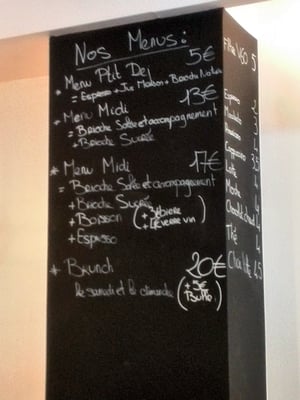 Nos Menus:
* Menu P'tit Dej 5€
= Espresso + Jus Maison + Brioche Nature
* Menu Midi 13€
= Brioche Salée et accompagnement
+ Brioche Sucrée
* Menu Midi 17€
= Brioche Salée et accompagnement
+ Brioche Sucrée
+ Boisson (+3€ bière
+ Espresso
* Brunch 20€
le samedi et le dimanche (+5€
Buffet)
Espresso 2
Cappuccino 3.5
Latte 4
Mocha
Chocolat chaud 4
Thé 4
Chai latte 4.5